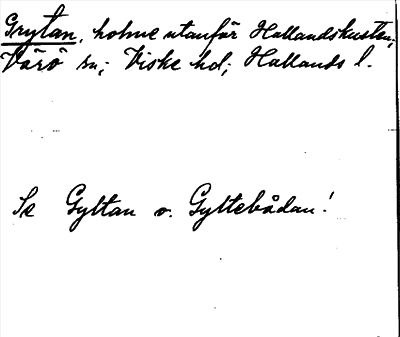 Grytan, holme utanför Hallandskusten;
Värö sn; Viske hd; Hallands l.
Se Gyltan o. Gyltebådan!